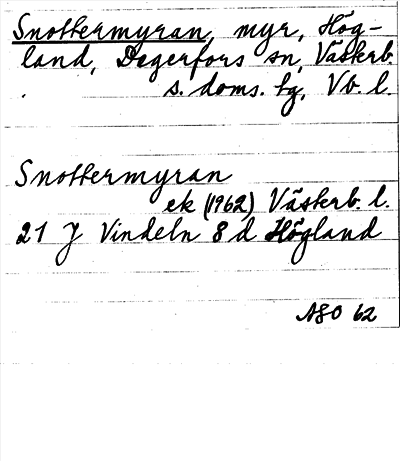 Snottermyran, myr, Hög-
land, Degerfors sn, Västerb.
s. doms. tg, Vb. l.
Snottermyran
ek (1962) Västerb. l.
21 J Vindeln 8 d Högland
ASO 62